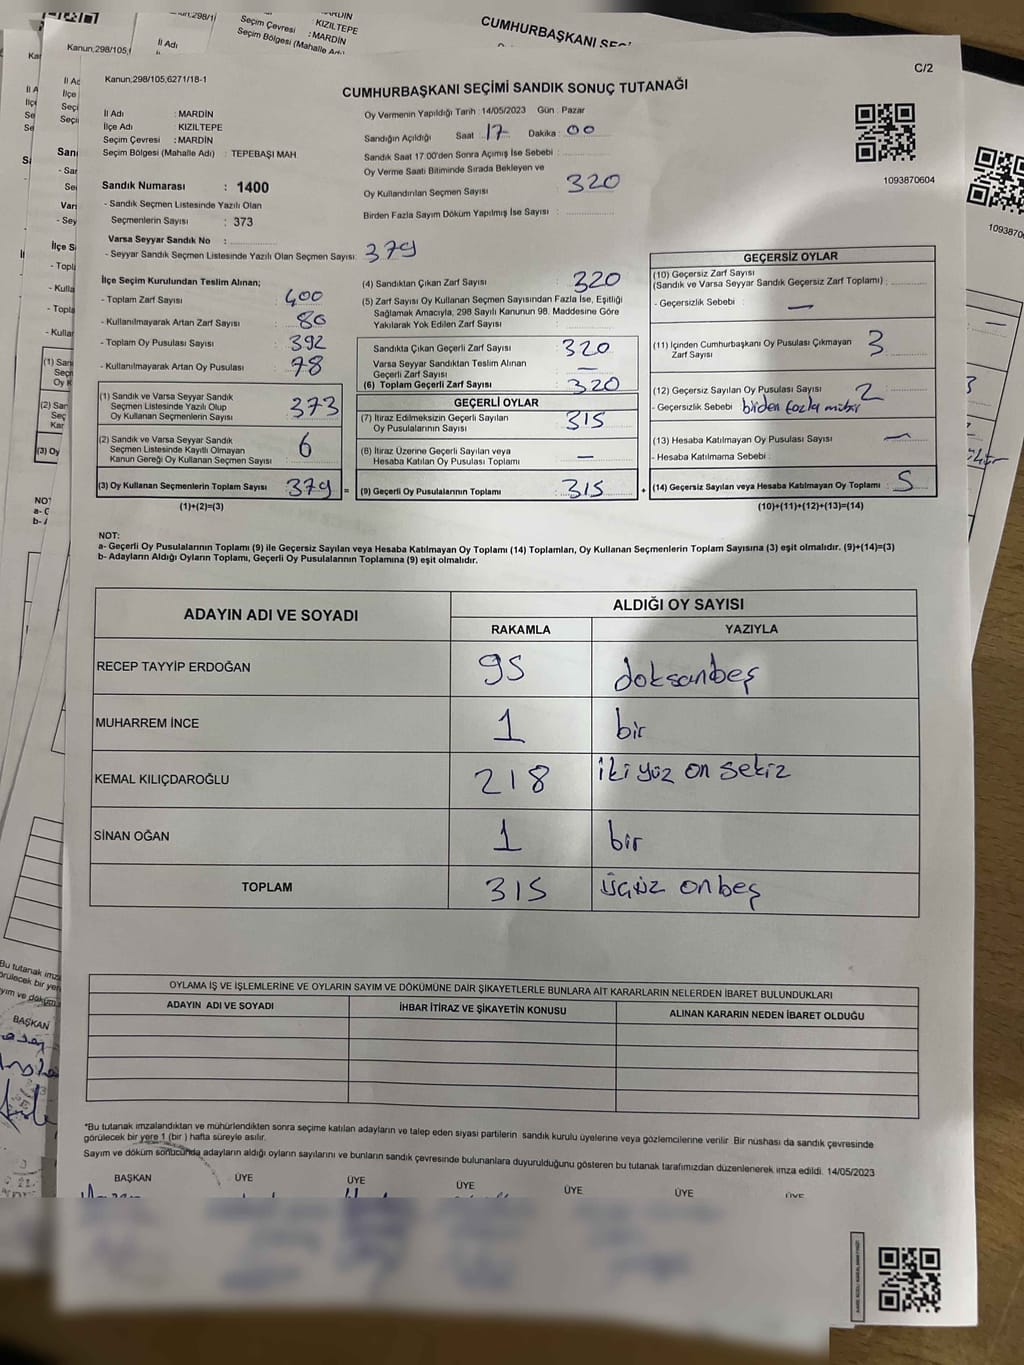 CUMHURBAŞKANI SEÇ
Seçim Çevresi : KIZILTEPE
Seçim Bölgesi (Mahalle Adı) : MARDİN
Kanun;298/105,
İl Adı
C/2
Kanun;298/105,6271/18-1
CUMHURBAŞKANI SEÇİMİ SANDIK SONUÇ TUTANAĞI
İl Adı : MARDİN
İlçe Adı KIZILTEPE
Seçim Çevresi : MARDİN
Seçim Bölgesi (Mahalle Adı) : TEPEBAŞI MAH
Sandık Numarası : 1400
- Sandık Seçmen Listesinde Yazılı Olan
Seçmenlerin Sayısı : 373
Varsa Seyyar Sandık No :
- Seyyar Sandık Seçmen Listesinde Yazılı Olan Seçmen Sayısı: 379
Oy Vermenin Yapıldığı Tarih : 14/05/2023 Gün : Pazar
Sandığın Açıldığı Saat : 17 Dakika : 00
Sandık Saat 17:00'den Sonra Açımış İse Sebebi :
Oy Verme Saati Bitiminde Sırada Bekleyen ve
Oy Kullandırılan Seçmen Sayısı 320
Birden Fazla Sayım Döküm Yapılmış İse Sayısı :
1093870604
İlçe Seçim Kurulundan Teslim Alınan;
- Toplam Zarf Sayısı : 400
- Kullanılmayarak Artan Zarf Sayısı : 80
- Toplam Oy Pusulası Sayısı : 392
- Kullanılmayarak Artan Oy Pusulası : 78
(1) Sandık ve Varsa Seyyar Sandık
Seçmen Listesinde Yazılı Olup
Oy Kullanan Seçmenlerin Sayısı : 373
(2) Sandık ve Varsa Seyyar Sandık
Seçmen Listesinde Kayıtlı Olmayan
Kanun Gereği Oy Kullanan Seçmen Sayısı : 6
(3) Oy Kullanan Seçmenlerin Toplam Sayısı : 379 =
(1)+(2)=(3)
(4) Sandıktan Çıkan Zarf Sayısı : 320
(5) Zarf Sayısı Oy Kullanan Seçmen Sayısından Fazla İse, Eşitliği
Sağlamak Amacıyla, 298 Sayılı Kanunun 98. Maddesine Göre
Yakılarak Yok Edilen Zarf Sayısı :
Sandıkta Çıkan Geçerli Zarf Sayısı : 320
Varsa Seyyar Sandıktan Teslim Alınan
Geçerli Zarf Sayısı : —
(6) Toplam Geçerli Zarf Sayısı : 320
GEÇERLİ OYLAR
(7) İtiraz Edilmeksizin Geçerli Sayılan
Oy Pusulalarının Sayısı : 315
(8) İtiraz Üzerine Geçerli Sayılan veya
Hesaba Katılan Oy Pusulası Toplamı : —
(9) Geçerli Oy Pusulalarının Toplamı : 315 +
GEÇERSİZ OYLAR
(10) Geçersiz Zarf Sayısı
(Sandık ve Varsa Seyyar Sandık Geçersiz Zarf Toplamı) :
- Geçersizlik Sebebi : —
(11) İçinden Cumhurbaşkanı Oy Pusulası Çıkmayan
Zarf Sayısı : 3
(12) Geçersiz Sayılan Oy Pusulası Sayısı : 2
- Geçersizlik Sebebi : birden fazla mühür
(13) Hesaba Katılmayan Oy Pusulası Sayısı : —
- Hesaba Katılmama Sebebi :
(14) Geçersiz Sayılan veya Hesaba Katılmayan Oy Toplamı : 5
(10)+(11)+(12)+(13)=(14)
NOT:
a- Geçerli Oy Pusulalarının Toplamı (9) ile Geçersiz Sayılan veya Hesaba Katılmayan Oy Toplamı (14) Toplamları, Oy Kullanan Seçmenlerin Toplam Sayısına (3) eşit olmalıdır. (9)+(14)=(3)
b- Adayların Aldığı Oyların Toplamı, Geçerli Oy Pusulalarının Toplamına (9) eşit olmalıdır.
ADAYIN ADI VE SOYADI ALDIĞI OY SAYISI
RAKAMLA YAZIYLA
RECEP TAYYİP ERDOĞAN 95 doksanbeş
MUHARREM İNCE 1 bir
KEMAL KILIÇDAROĞLU 218 iki yüz on sekiz
SİNAN OĞAN 1 bir
TOPLAM 315 üçyüz onbeş
OYLAMA İŞ VE İŞLEMLERİNE VE OYLARIN SAYIM VE DÖKÜMÜNE DAİR ŞİKAYETLERLE BUNLARA AİT KARARLARIN NELERDEN İBARET BULUNDUKLARI
ADAYIN ADI VE SOYADI İHBAR İTİRAZ VE ŞİKAYETİN KONUSU ALINAN KARARIN NEDEN İBARET OLDUĞU
*Bu tutanak imzalandıktan ve mühürlendikten sonra seçime katılan adayların ve talep eden siyasi partilerin sandık kurulu üyelerine veya gözlemcilerine verilir Bir nüshası da sandık çevresinde
görülecek bir yere 1 (bir ) hafta süreyle asılır.
Sayım ve döküm sonucunda adayların aldığı oyların sayılarını ve bunların sandık çevresinde bulunanlara duyurulduğunu gösteren bu tutanak tarafımızdan düzenlenerek imza edildi. 14/05/2023
BAŞKAN ÜYE ÜYE ÜYE ÜYE ÜYE ÜYE